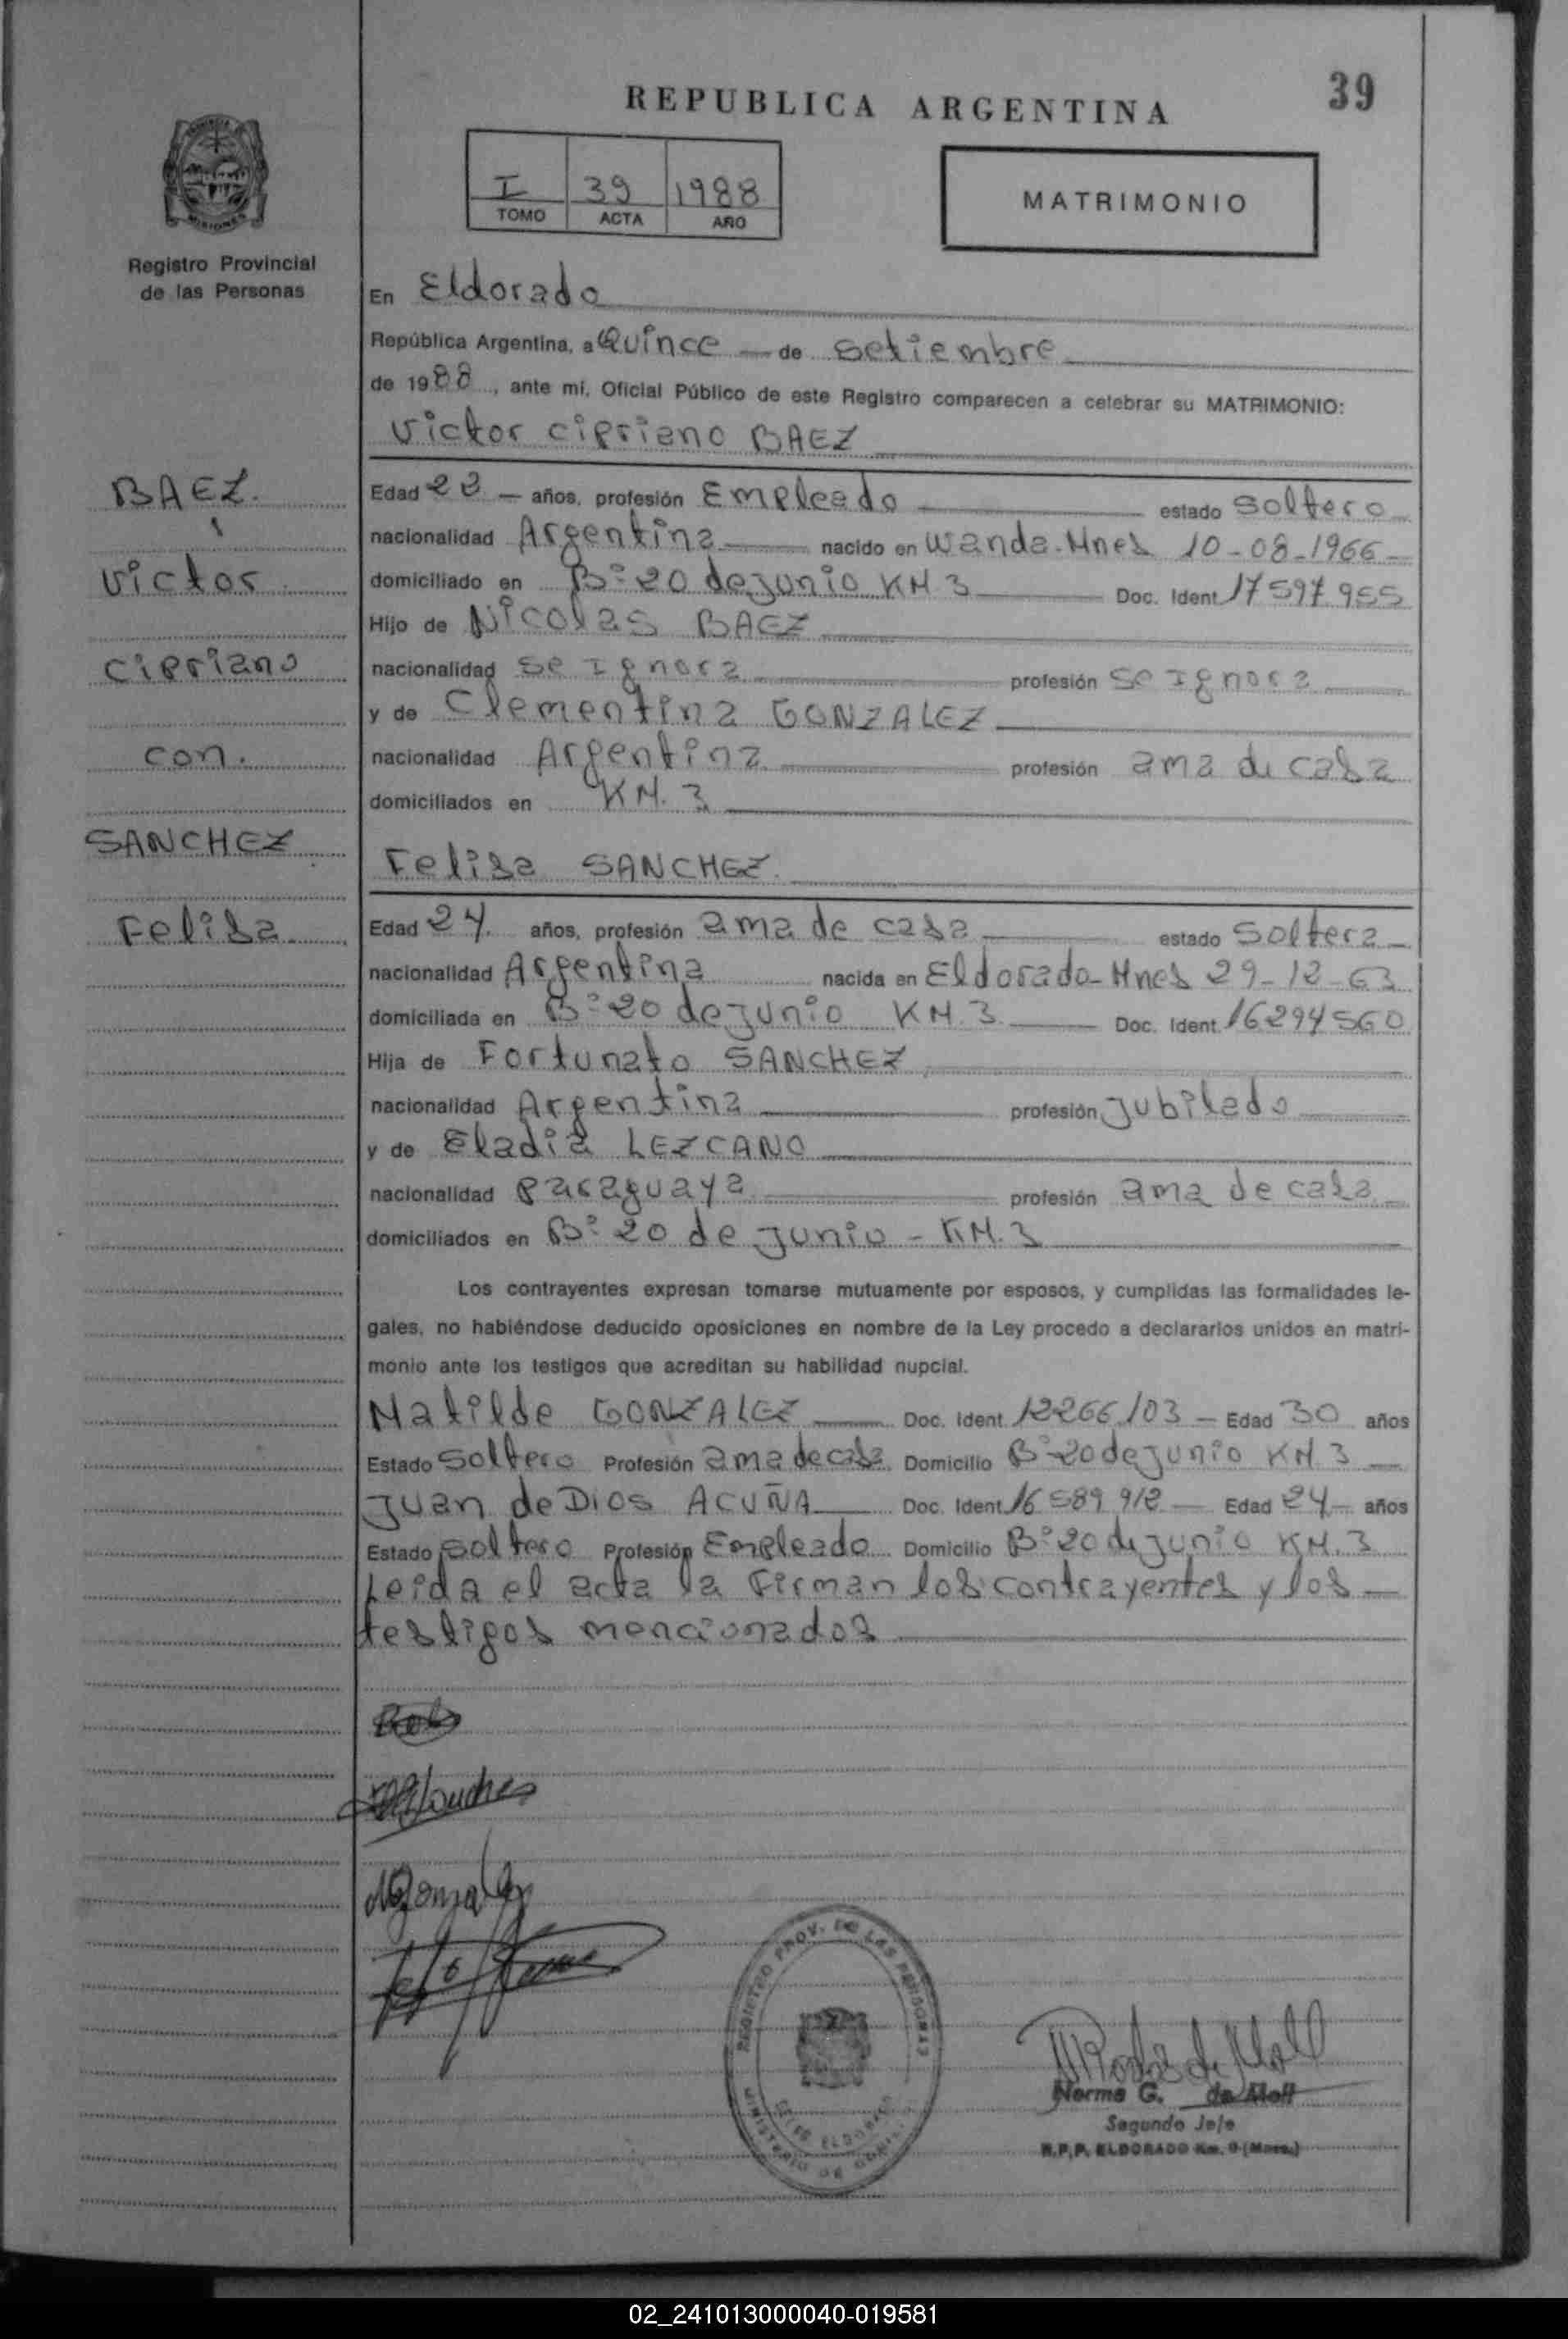 39
REPUBLICA ARGENTINA
I 39 1988
TOMO ACTA AÑO
MATRIMONIO
Registro Provincial
de las Personas
En Eldorado
República Argentina, a Quince de setiembre
de 1988, ante mí, Oficial Público de este Registro comparecen a celebrar su MATRIMONIO:
Victor Cipriano BAEZ
BAEZ.
Victor
Cipriano
con.
SANCHEZ
Felisa
Edad 22 años, profesión Empleado estado soltero
nacionalidad Argentina nacido en Wanda-Mnes 10-08-1966
domiciliado en B° 20 de junio KM 3 Doc. Ident. 17597955
Hijo de Nicolas BAEZ
nacionalidad se Ignora profesión se Ignora
y de Clementina GONZALEZ
nacionalidad Argentina profesión ama de casa
domiciliados en KM. 3
Felisa SANCHEZ.
Edad 24. años, profesión ama de casa estado soltera
nacionalidad Argentina nacida en Eldorado-Mnes 29-12-63
domiciliada en B° 20 de junio KM. 3 Doc. Ident. 16294560
Hija de Fortunato SANCHEZ
nacionalidad Argentina profesión jubilado
y de Eladia LEZCANO
nacionalidad paraguaya profesión ama de casa
domiciliados en B° 20 de junio - KM. 3
Los contrayentes expresan tomarse mutuamente por esposos, y cumplidas las formalidades le-
gales, no habiéndose deducido oposiciones en nombre de la Ley procedo a declararlos unidos en matri-
monio ante los testigos que acreditan su habilidad nupcial.
Matilde GONZALEZ Doc. Ident. 12266103 - Edad 30 años
Estado soltero Profesión ama de casa Domicilio B° 20 de junio KM. 3
Juan de Dios ACUÑA Doc. Ident. 16589912 Edad 24 años
Estado soltero Profesión Empleado Domicilio B° 20 de junio KM. 3
Leida el acta la Firman los contrayentes y los
testigos mencionados
REGISTRO PROV. DE LAS PERSONAS
ELDORADO
MINISTERIO DE
Norma G. de Moll
Segundo Jefe
R.P.P. ELDORADO Km. 9 (Mnes.)
02_241013000040-019581